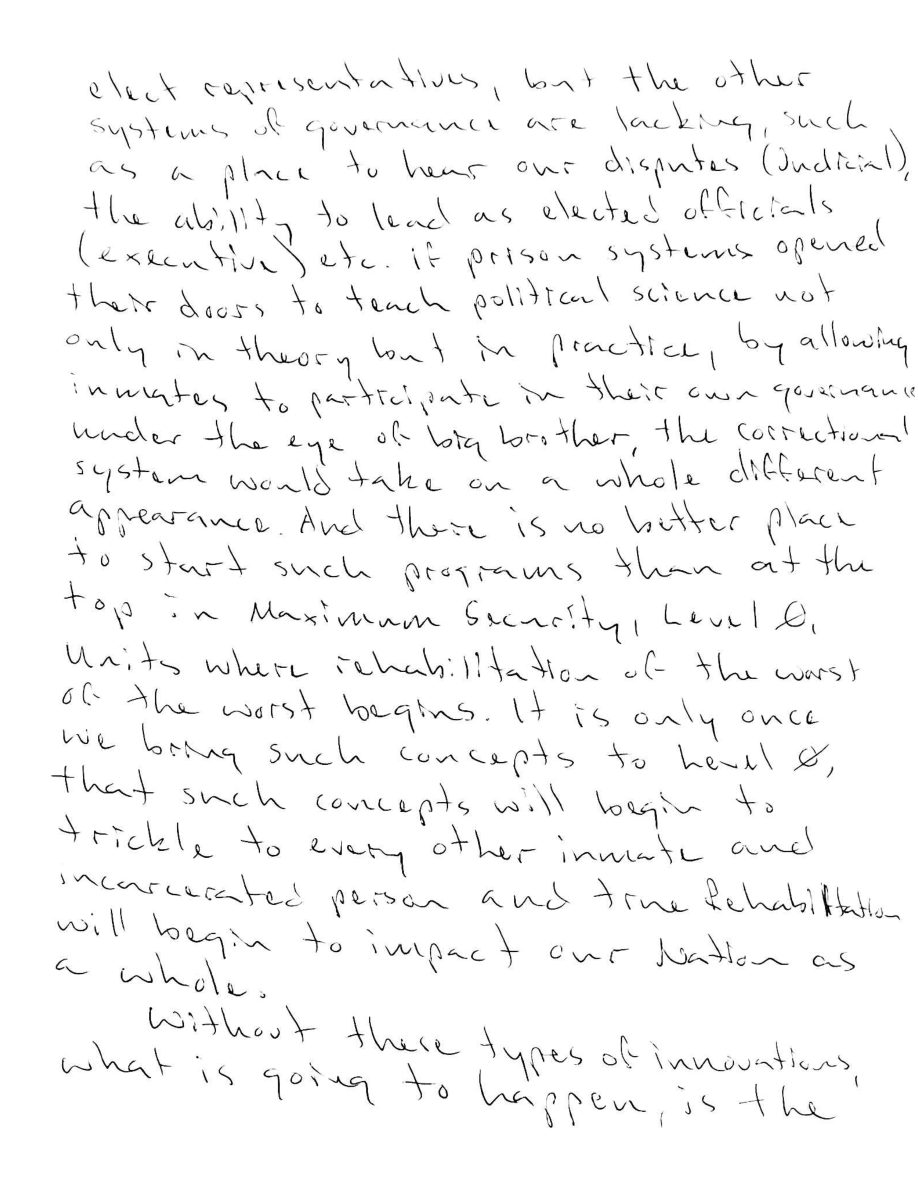 elect representatives, but the other
systems of governance are lacking, such
as a place to hear our disputes (Judicial),
the ability to lead as elected officials
(executive) etc. if prison systems opened
their doors to teach political science not
only in theory but in practice, by allowing
inmates to participate in their own governance
under the eye of big brother, the correctional
system would take on a whole different
appearance. And there is no better place
to start such programs than at the
top in Maximum Security, Level Ø,
Units where rehabilitation of the worst
of the worst begins. It is only once
we bring such concepts to Level Ø,
that such concepts will begin to
trickle to every other inmate and
incarcerated person and true Rehabilitation
will begin to impact our Nation as
a whole.
Without these types of innovations,
what is going to happen, is the